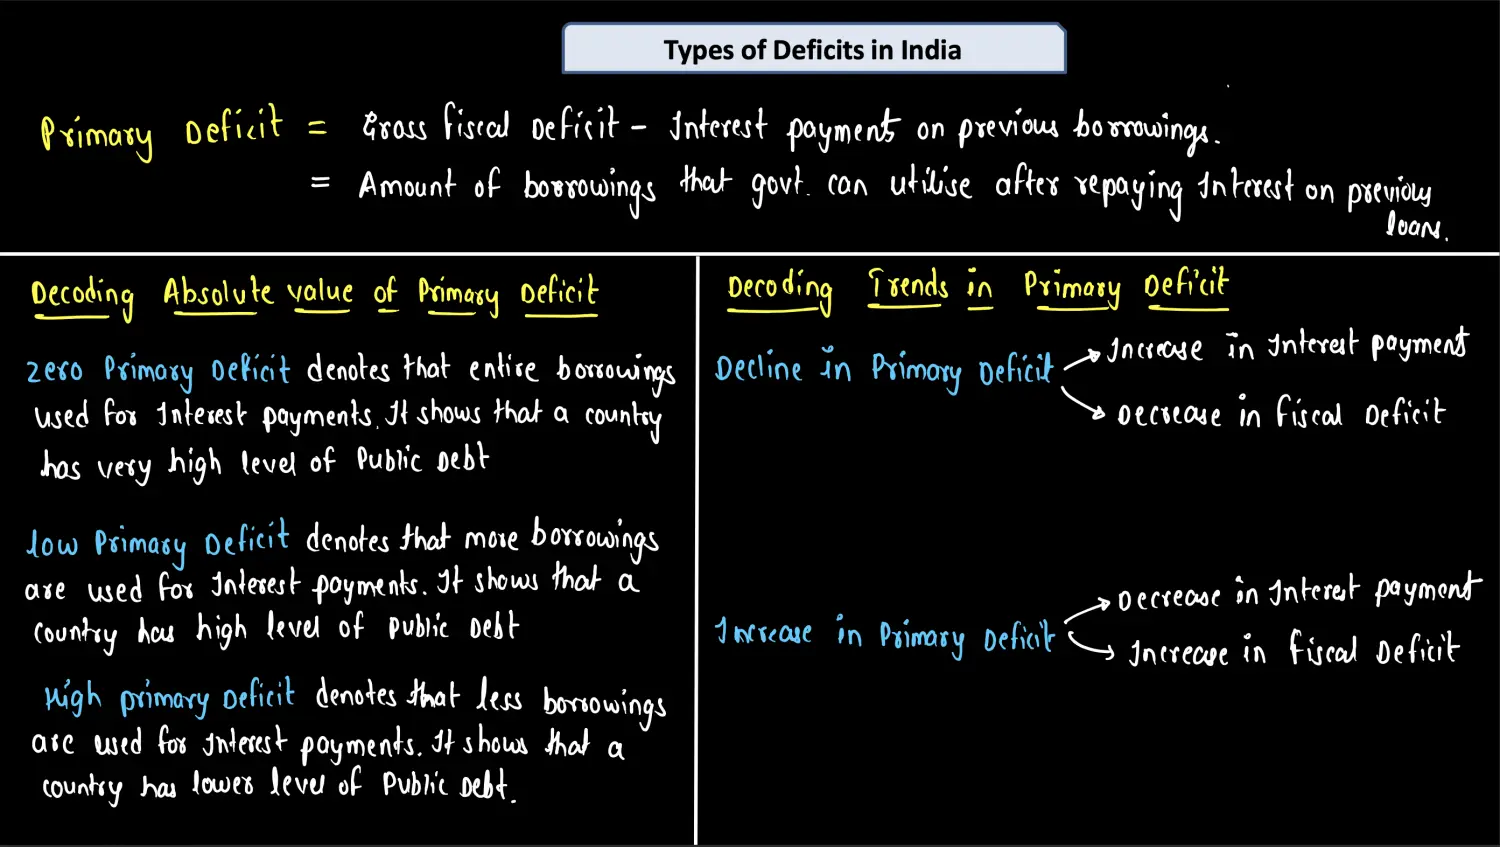 Types of Deficits in India
Primary Deficit = Gross fiscal Deficit - Interest payments on previous borrowings.
= Amount of borrowings that govt. can utilise after repaying Interest on previous
loans.
Decoding Absolute value of Primary Deficit
Zero Primary Deficit denotes that entire borrowings
used for Interest payments. It shows that a country
has very high level of Public Debt
low Primary Deficit denotes that more borrowings
are used for Interest payments. It shows that a
country has high level of Public Debt
High primary Deficit denotes that less borrowings
are used for Interest payments. It shows that a
country has lower level of Public Debt.
Decoding Trends in Primary Deficit
Decline in Primary Deficit
Increase in Interest payment
Decrease in Fiscal Deficit
Increase in Primary Deficit
Decrease in Interest payment
Increase in Fiscal Deficit